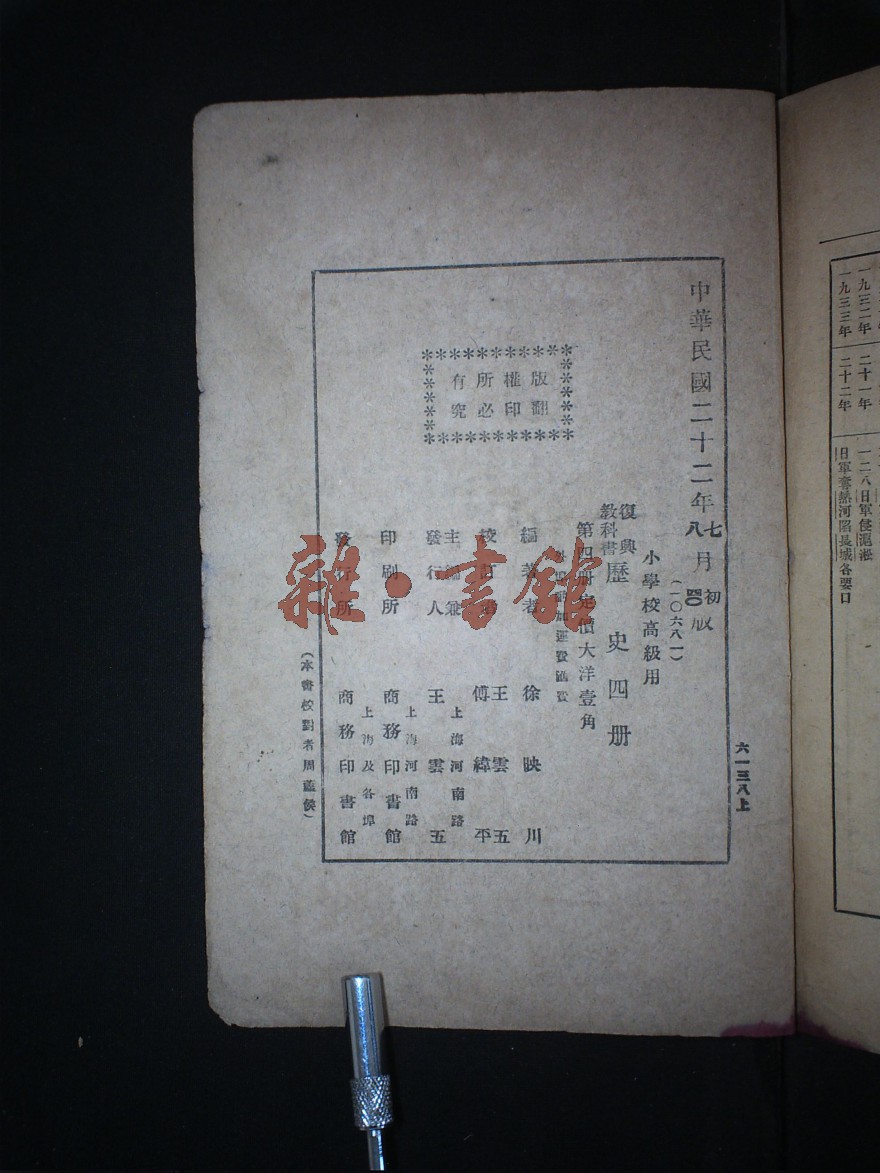 中華民國二十二年七月初版
八 四〇版
(一〇六八一)
小學校高級用
復興教科書 歷史四册
第四册定價大洋壹角
外埠酌加運費匯費
編著者 徐映川
校訂者 王雲五 傅緯平
主編兼發行人 王雲五
上海河南路
印刷所 商務印書館
上海河南路
發行所 商務印書館
上海及各埠
版權所有
翻印必究
(本書校對者周
六一三八上
雜·書館
一九三二年 二十一年 一二八日軍侵滬淞
一九三三年 二十二年 日軍奪熱河陷長城各要口